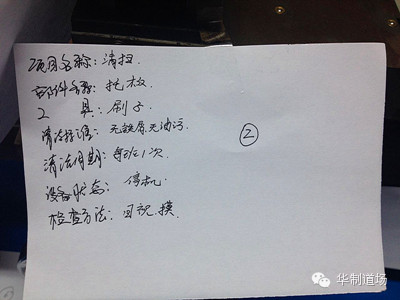 项目名称:清扫
部件名称:托板
工 具:刷子
清洁标准:无铁屑.无油污
清洁周期:每班1次.
设备状态: 停机
检查方法: 目视.摸.
②
华制道场